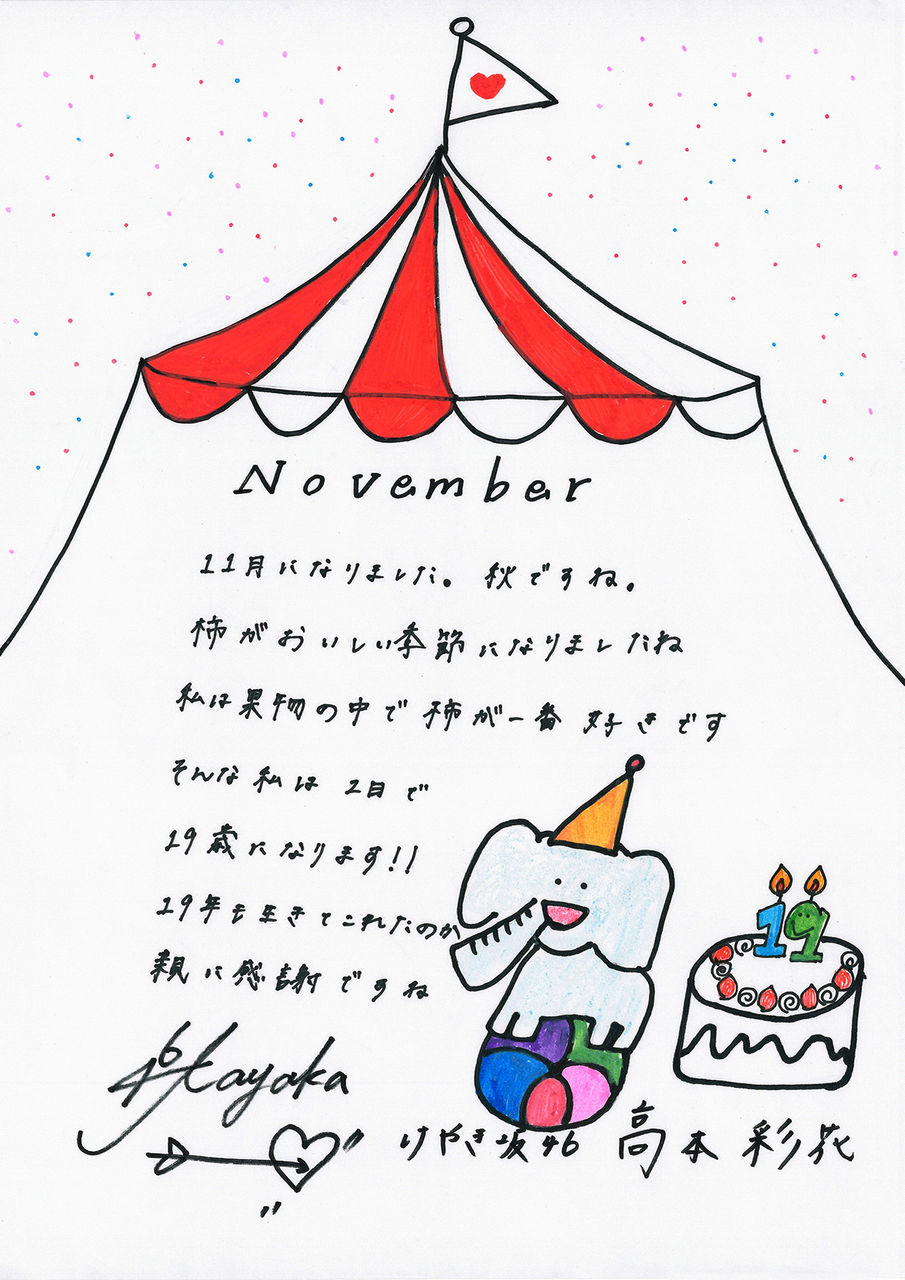 November
11月になりました。秋ですね。
柿がおいしい季節になりましたね
私は果物の中で柿が一番好きです
そんな私は2日で
19歳になります!!
19年も生きてこれたのか
親に感謝ですね
46 tayaka
けやき坂46 高本彩花
19